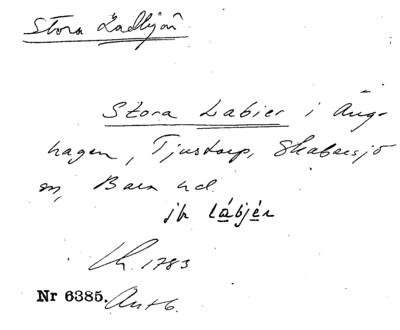 Stora Ladbjär
Stora Labier i Äng-
hagen, Tjustorp, Skabersjö
sn, Bara hd.
jfr lábjér
Kh. 1783
Nr 6385.